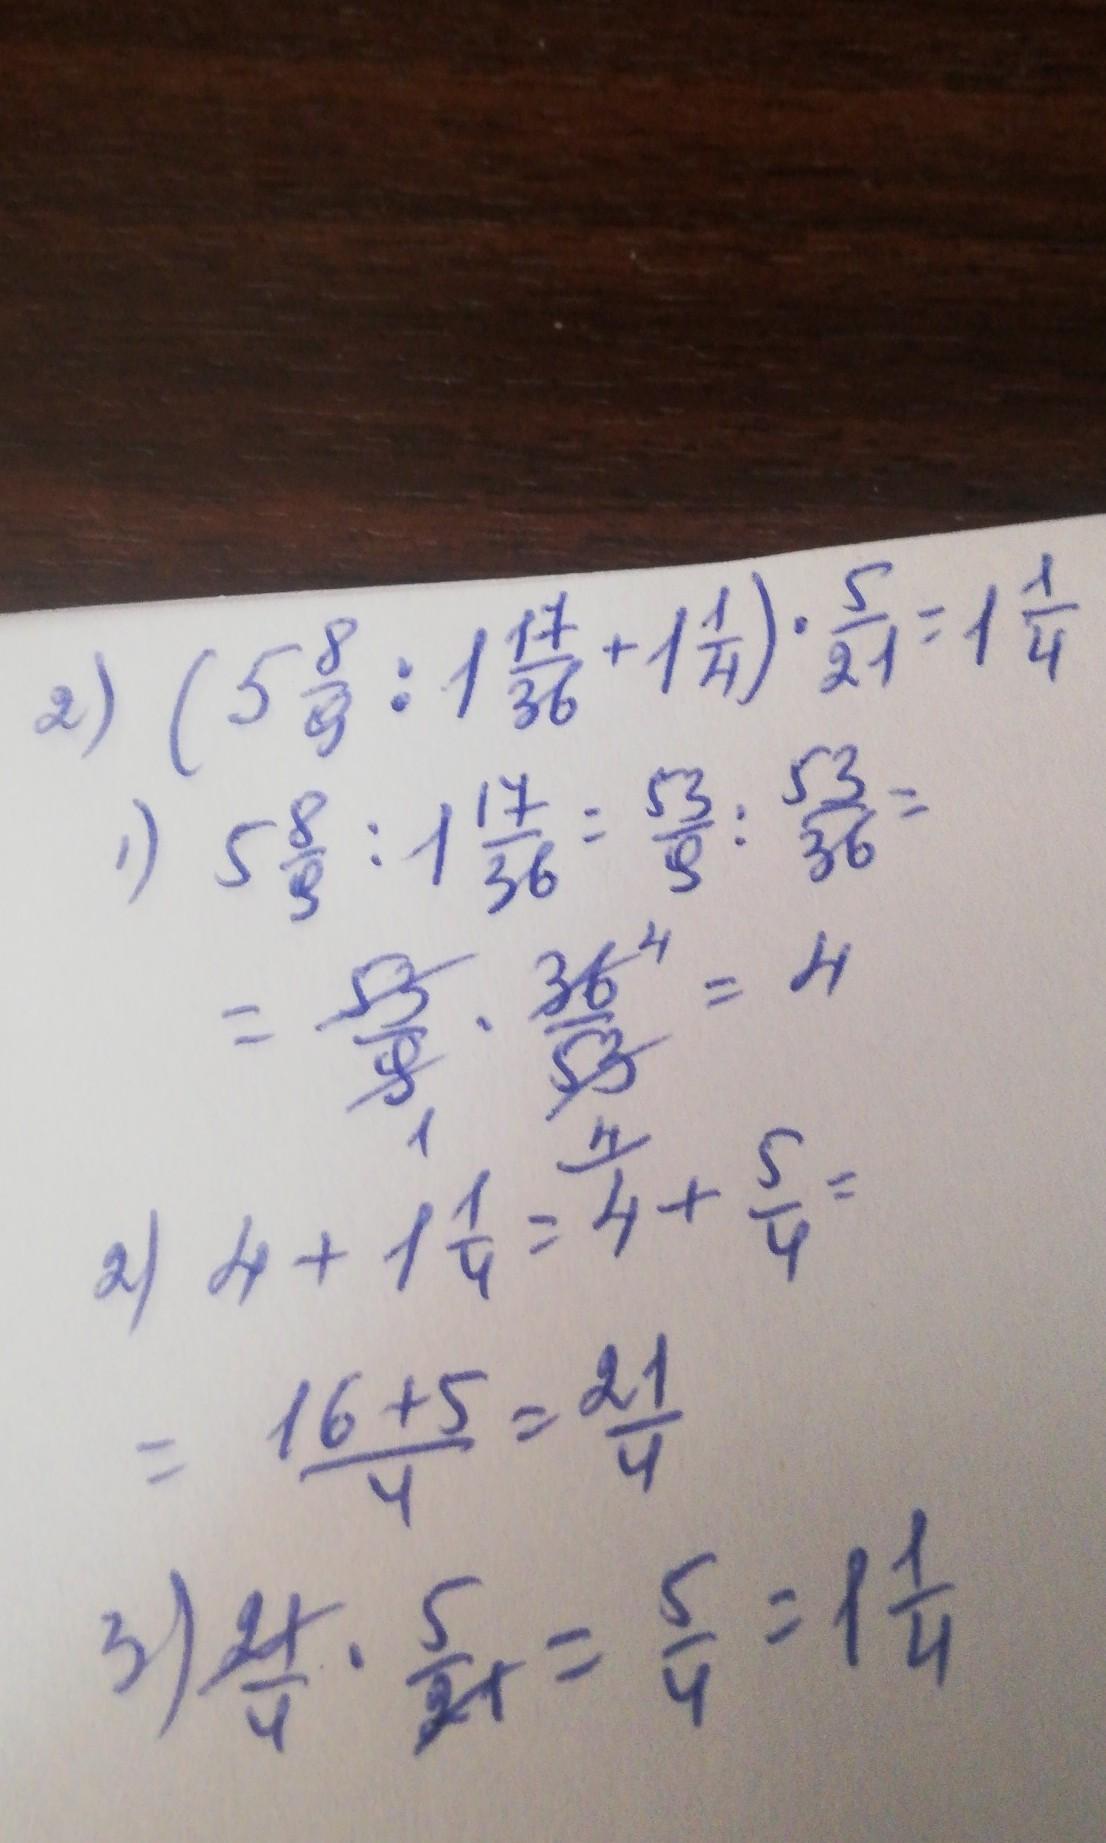 2) (5 8/9 : 1 17/36 + 1 1/4) · 5/21 = 1 1/4
1) 5 8/9 : 1 17/36 = 53/9 : 53/36 =
= 53/9 · 36/53 = 4
4
1
2) 4 + 1 1/4 = 4/4 + 5/4 =
= 16+5/4 = 21/4
3) 21/4 · 5/21 = 5/4 = 1 1/4